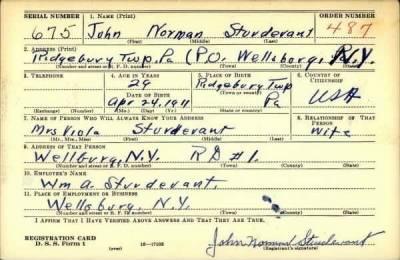 SERIAL NUMBER 1. NAME (Print) ORDER NUMBER
675 John Norman Sturdevant 487
(First) (Middle) (Last)
2. ADDRESS (Print)
Ridgebury Twp. Pa (P.O. Wellsburg, N.Y.
(Number and street or R. F. D. number) (Town) (County) (State)
3. TELEPHONE 4. AGE IN YEARS 5. PLACE OF BIRTH 6. COUNTRY OF CITIZENSHIP
29 Ridgebury Twp
DATE OF BIRTH (Town or county)
Apr 24, 1911 Pa USA
(Exchange) (Number) (Mo.) (Day) (Yr.) (State or country)
7. NAME OF PERSON WHO WILL ALWAYS KNOW YOUR ADDRESS 8. RELATIONSHIP OF THAT PERSON
Mrs Viola Sturdevant Wife
(Mr., Mrs., Miss) (First) (Middle) (Last)
9. ADDRESS OF THAT PERSON
Wellburg, N.Y. RD #1.
(Number and street or R. F. D. number) (Town) (County) (State)
10. EMPLOYER'S NAME
Wm A. Sturdevant.
11. PLACE OF EMPLOYMENT OR BUSINESS
Wellsburg, N.Y.
(Number and street or R. F. D. number) (Town) (County) (State)
I AFFIRM THAT I HAVE VERIFIED ABOVE ANSWERS AND THAT THEY ARE TRUE.
REGISTRATION CARD
D. S. S. Form 1 (over) 16-17105 John Norman Sturdevant
(Registrant's signature)